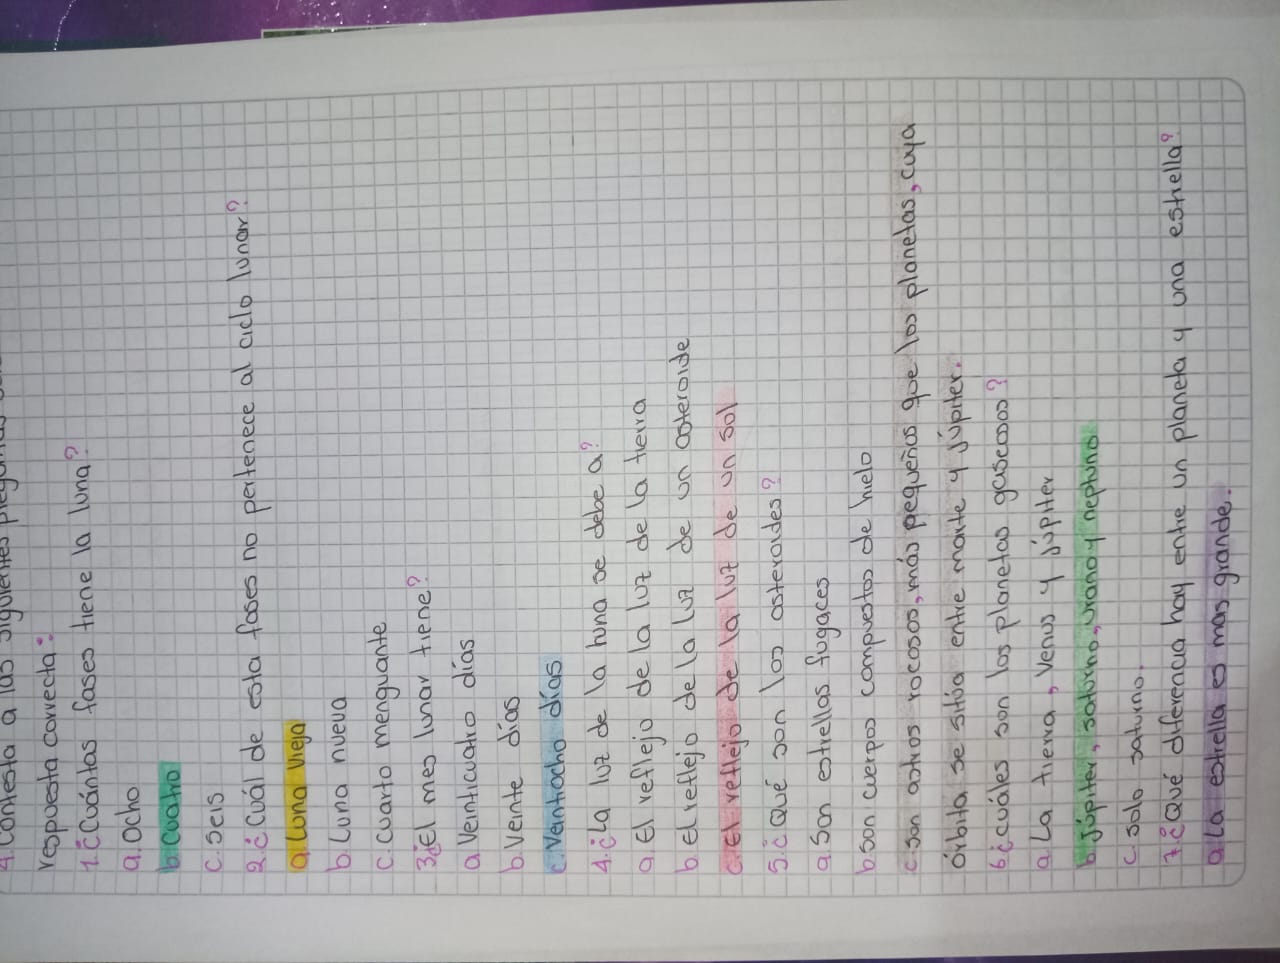 4. Contesta a las siguientes preguntas
respuesta correcta:
1.¿Cuántas fases tiene la luna?
a. Ocho
b. cuatro
c. seis
2.¿Cuál de esta fases no pertenece al ciclo lunar?
a. Luna vieja
b. Luna nueva
c. cuarto menguante
3.¿El mes lunar tiene?
a. Veinticuatro días
b. Veinte días
c. Veintiocho días
4.¿La luz de la luna se debe a?
a El reflejo de la luz de la tierra
b. El reflejo de la luz de un asteroide
c. El reflejo de la luz de un sol
5.¿Qué son los asteroides?
a. Son estrellas fugaces
b. son cuerpos compuestos de hielo
c. son astros rocosos, más pequeños que los planetas, cuya
órbita se sitúa entre marte y júpiter.
6.¿cuáles son los planetas gaseosos?
a. La tierra, Venus y júpiter
b. júpiter, saturno, urano y neptuno
c. solo saturno.
7.¿Qué diferencia hay entre un planeta y una estrella?
a. La estrella es mas grande.